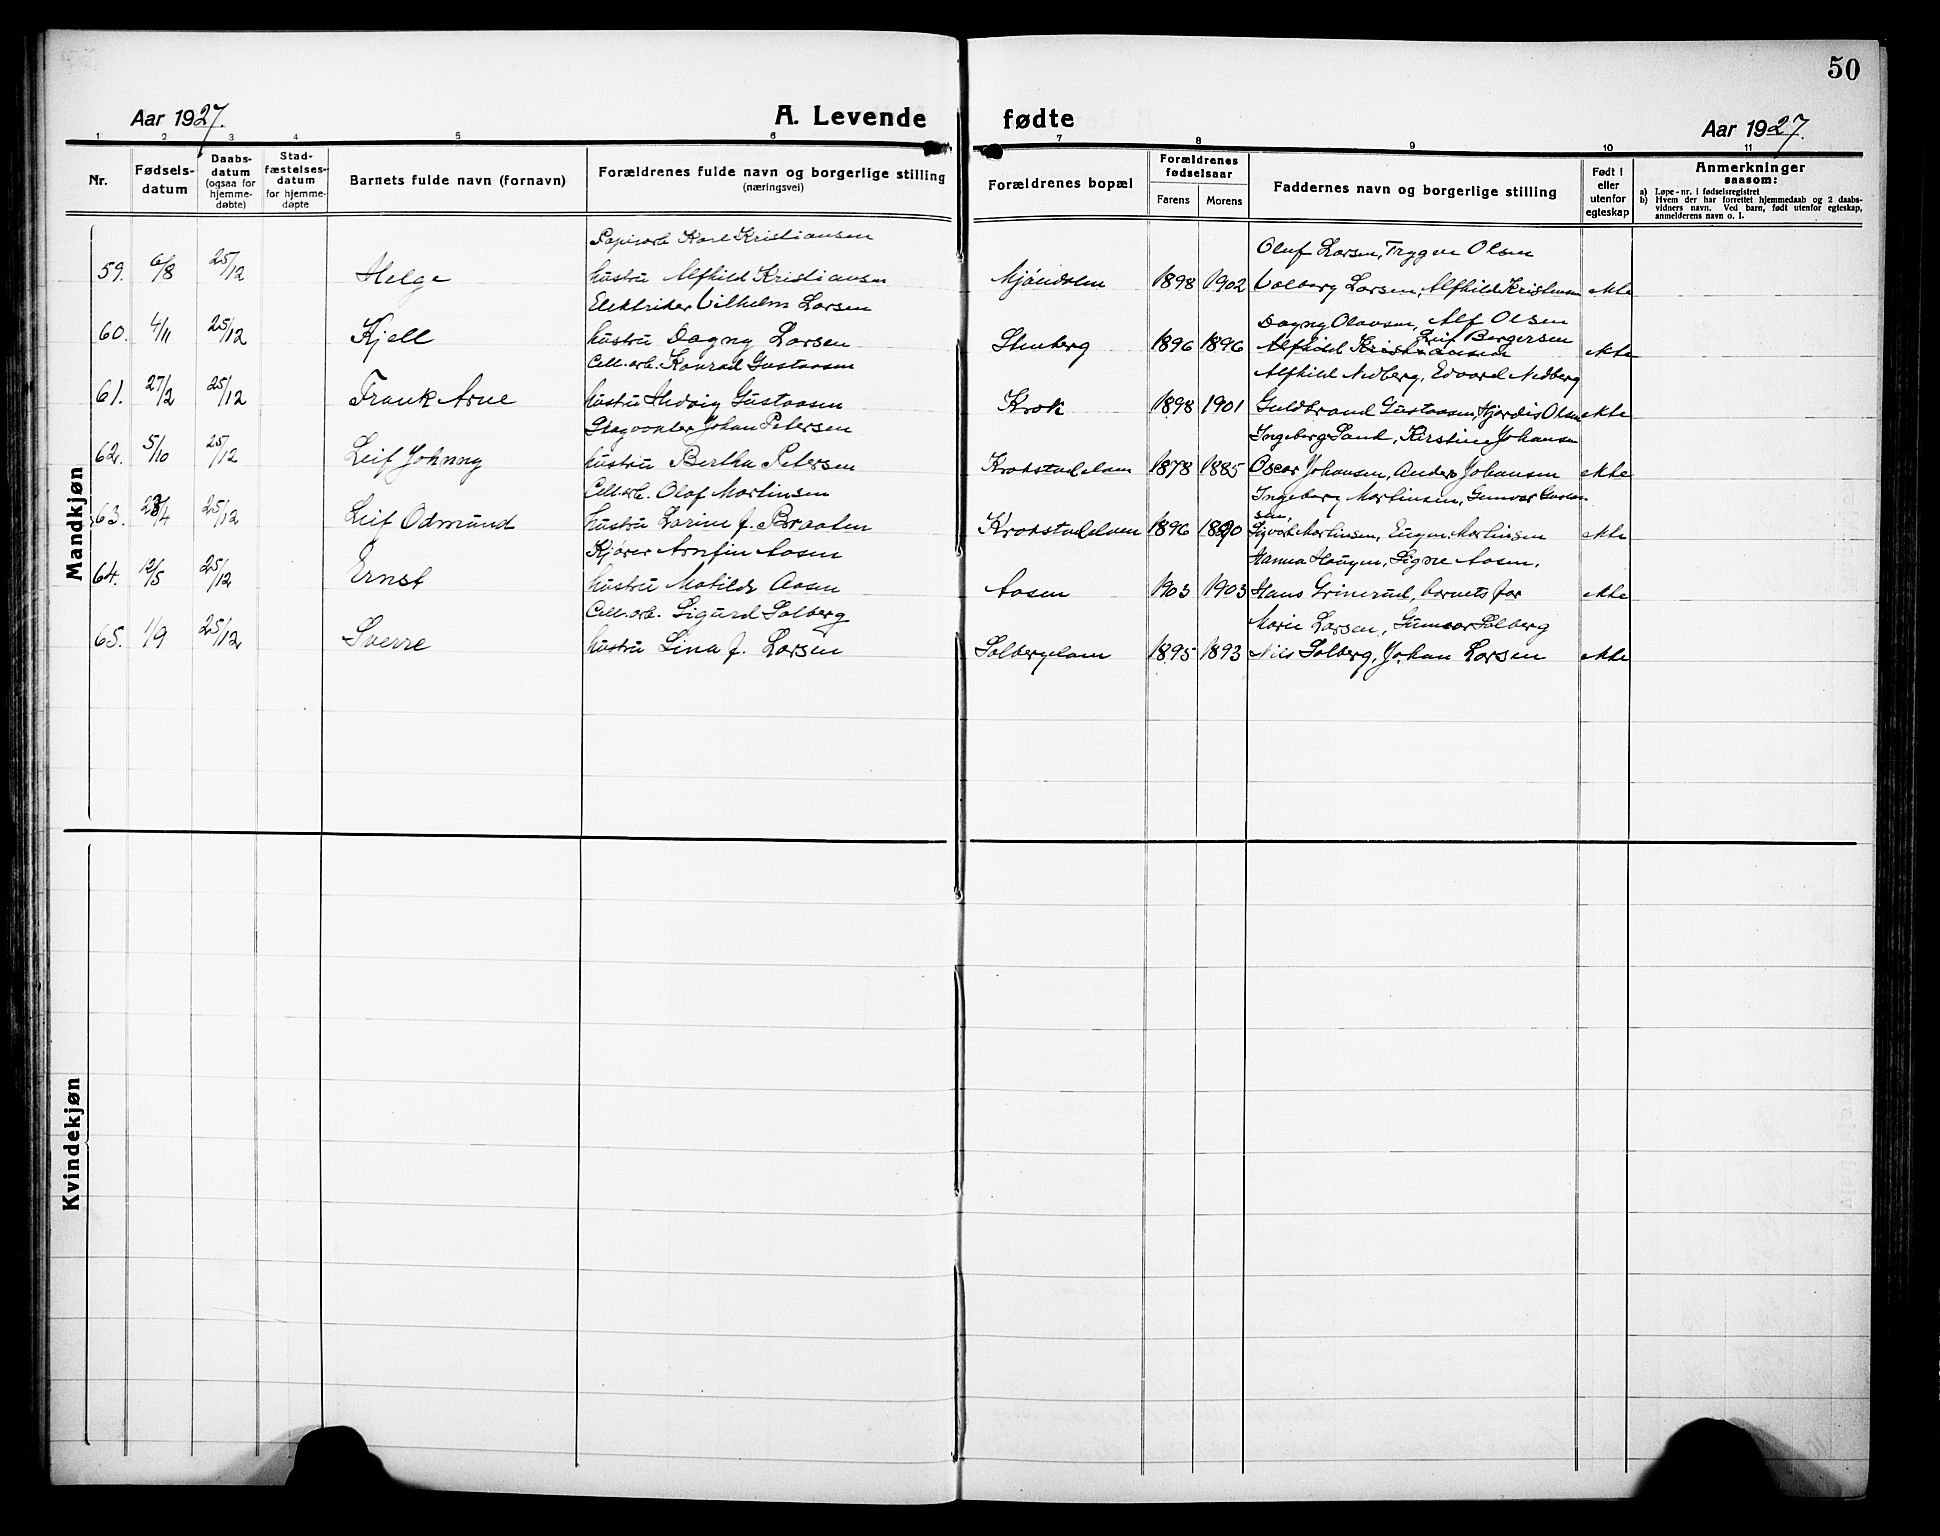 50
Aar 1927.
A. Levende fødte
Aar 1927.
1 2 3 4 5 6 7 8 9 10 11
Nr.
Fødsels-
datum
Daabs-
datum
(ogsaa for
hjemme-
døbte)
Stad-
fæstelses-
datum
for hjemme-
døpte
Barnets fulde navn (fornavn)
Forældrenes fulde navn og borgerlige stilling
(næringsvei)
Forældrenes bopæl
Forældrenes
fødselsaar
Farens
Morens
Faddernes navn og borgerlige stilling
Født i
eller
utenfor
egteskap
Anmerkninger
saasom:
a) Løpe-nr. i fødselsregistret
b) Hvem der har forrettet hjemmedaab og 2 daabs-
vidners navn. Ved barn, født utenfor egteskap,
anmelderens navn o. l.
Mandkjøn
Papirarb. Karl Kristiansen
Oluf Larsen, Trygve Olsen
59. 6/8 25/12 Helge hustru Alfhild Kristiansen Mjöndalen 1898 1902 Valborg Larsen, Alfhild Kristiansen ekte
Elektriker Vilhelm Larsen
Dagny Olavsen, Alf Olsen
Leif Bergersen
60. 4/11 25/12 Kjell hustru Dagny Larsen Stenberg 1896 1896 Alfhild Kristiansen ekte
Cell.arb. Konrad Gustavsen
Alfhild Nedberg, Edvard Nedberg
61. 27/2 25/12 Frank Arne hustru Hedvig Gustavsen Krok 1898 1901 Guldbrand Gustavsen, Hjordis Olsen ekte
Skogvokter Johan Petersen
Ingeborg Sand, Kirstine Johansen
62. 5/10 25/12 Leif Johnny hustru Bertha Petersen Krokstadelven 1878 1885 Oscar Johansen, Anders Johansen ekte
Cell.arb. Olaf Martinsen
Ingeborg Martinsen, Gunvor Gustav
sen,
63. 23/4 25/12 Leif Odmund hustru Larine f. Braaten Krokstadelven 1896 1890 Sigvart Martinsen, Eugen Martinsen ekte
Kjører Arnfin Aasen
Hanna Haugen, Signe Aasen,
64. 12/5 25/12 Ernst hustru Matilde Aasen Aasen 1903 1903 Hans Grinerud, barnets far ekte
Cell.arb. Sigurd Solberg
Marie Larsen, Gunvor Solberg
65. 1/9 25/12 Sverre hustru Lina f. Larsen Solbergelven 1895 1893 Nils Solberg, Johan Larsen ekte
Kvindekjøn